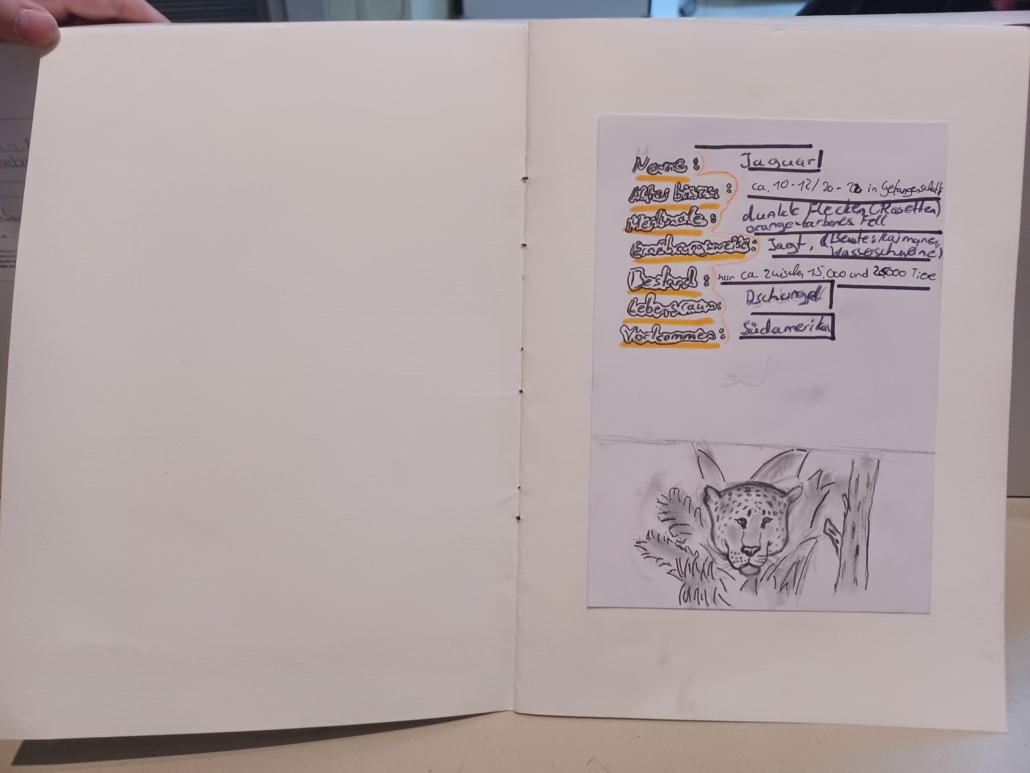 Name: Jaguar
Alter bis zu: ca. 10-12/20-22 in Gefangenschaft
Merkmale: dunkle Flecken (Rosetten)
orange-farbenes Fell
Ernährungsweise: Jagt, (Beute: Kaimane,
Wasserschweine)
Bestand: nur ca. zwischen 15.000 und Tiere
Lebensraum: Dschungel
Vorkommen: Südamerika